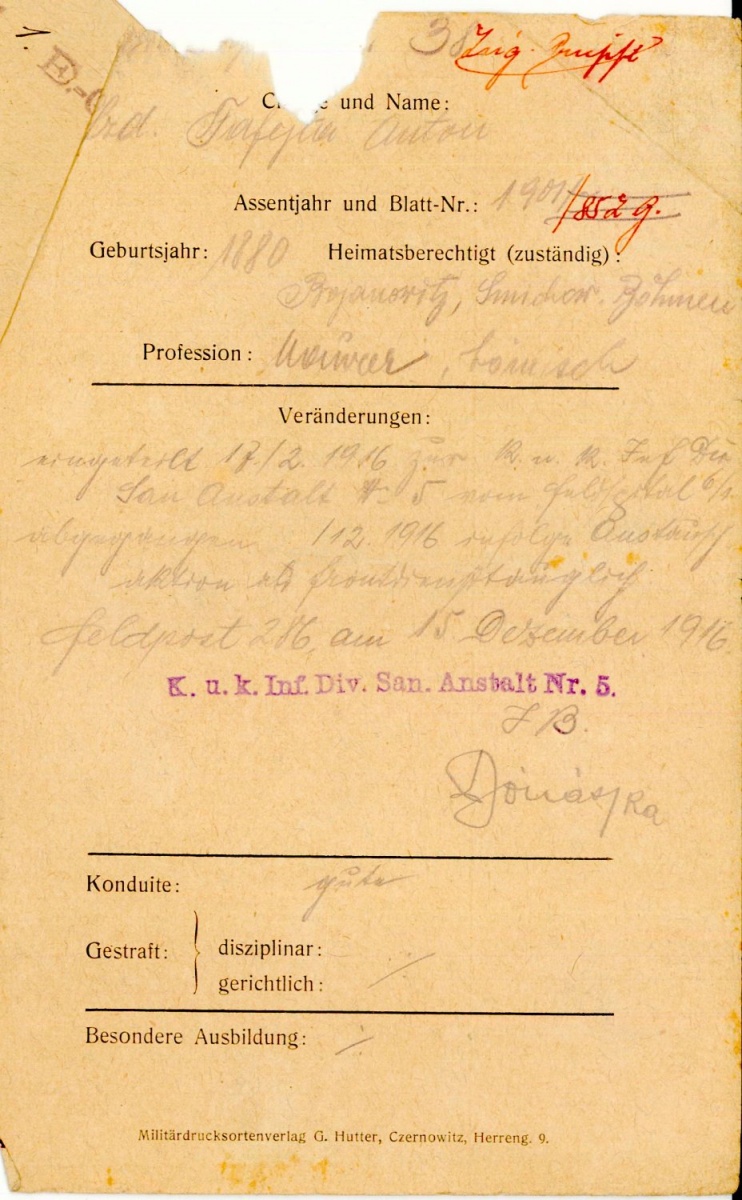 1.
E.-
38
Charge und Name:
Anton
Assentjahr und Blatt-Nr.: 1901/852 G.
Geburtsjahr: 1880 Heimatsberechtigt (zuständig):
Bojanowitz, Smichow. Böhmen
Profession: Maurer, bömisch
Veränderungen:
eingeteilt 17./2. 1916 zur K. u. K. Inf Div
San Anstalt N. 5 vom Feldspital 6/1.
abgegangen /12. 1916 infolge Austausch
aktion als frontdiensttauglich
Feldpost 286, am 15 Dezember 1916.
K. u. k. Inf. Div. San. Anstalt Nr. 5.
Konduite: gute
Gestraft: disziplinar:
gerichtlich: /
Besondere Ausbildung: ./.
Militärdrucksortenverlag G. Hutter, Czernowitz, Herreng. 9.